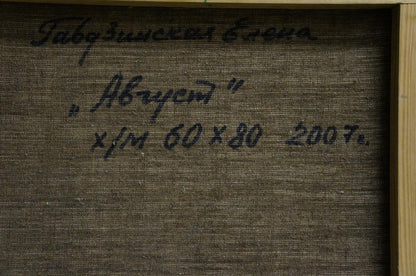 Гавдзинская Елена
„Август"
х/м 60 х 80 2007г.